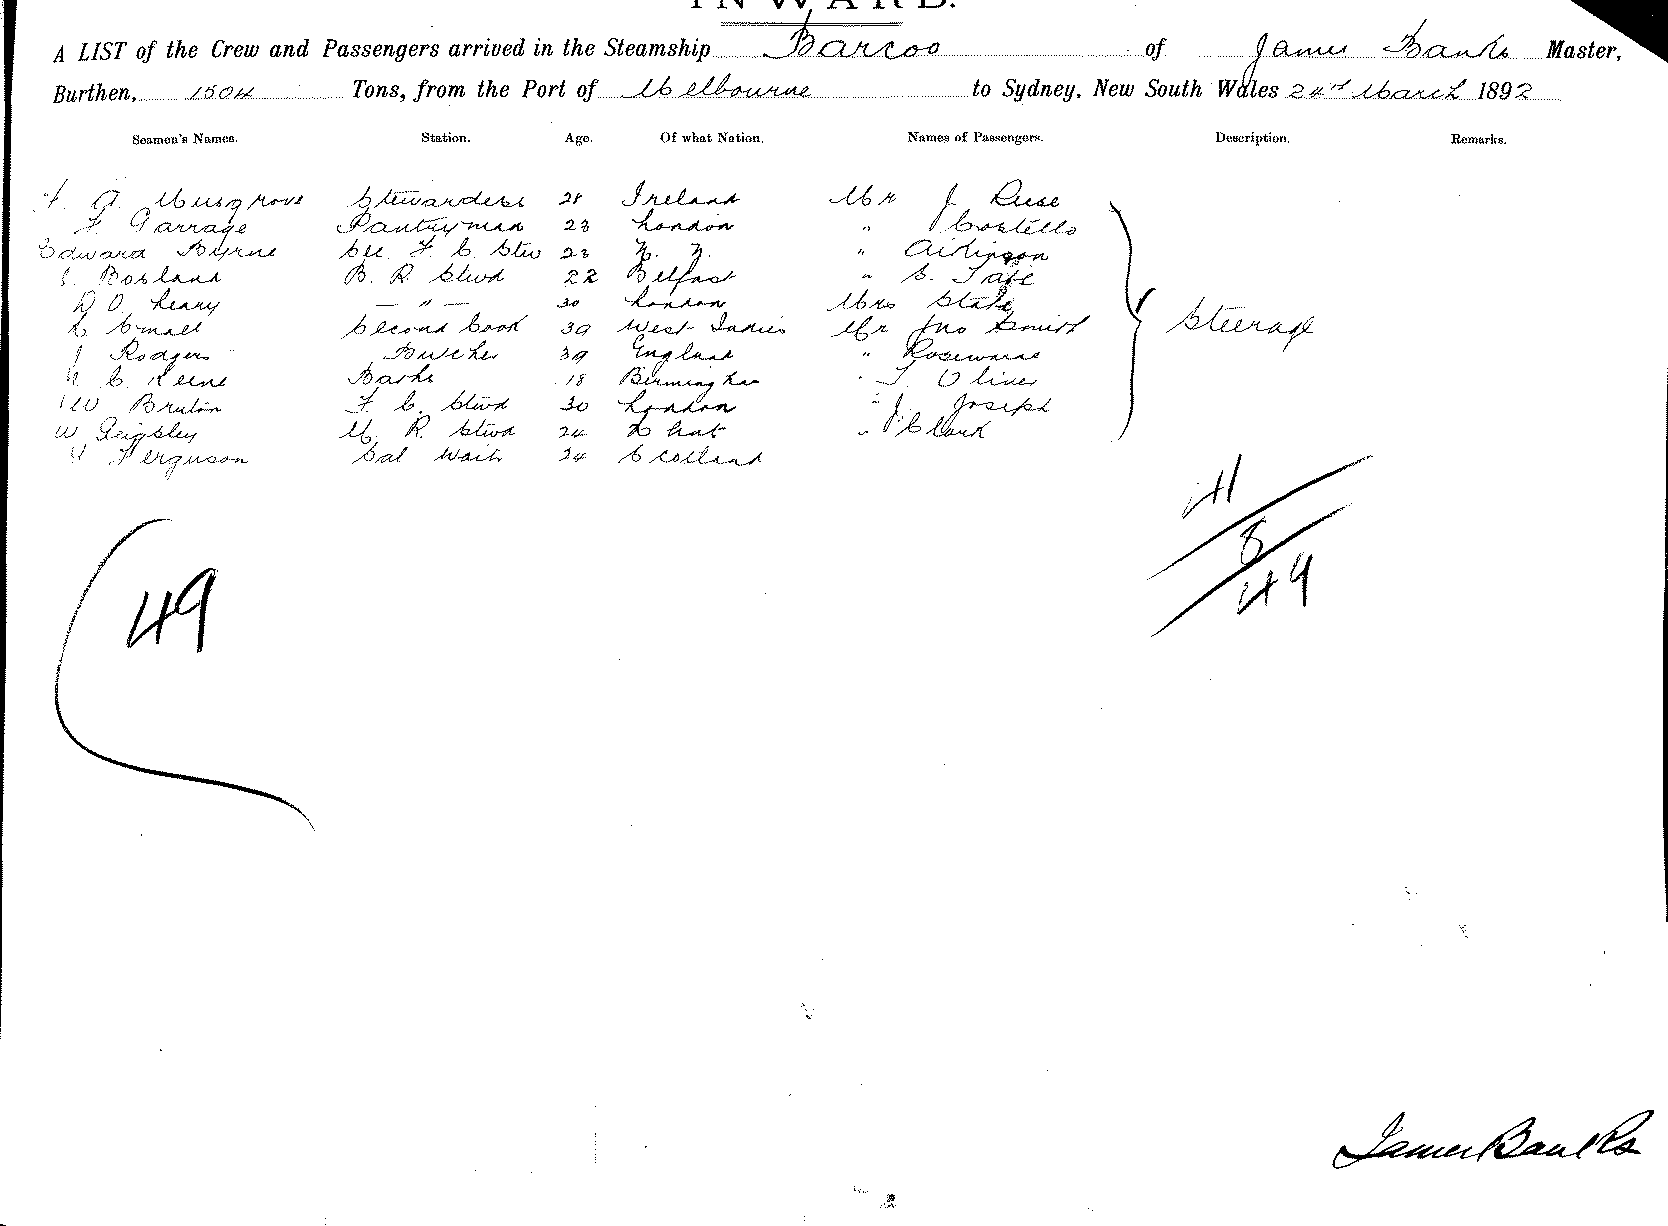 INWARD.
A LIST of the Crew and Passengers arrived in the Steamship Barcoo of James Banks Master,
Burthen, 1504 Tons, from the Port of Melbourne to Sydney, New South Wales 24th March 1892
Seamen's Names. Station. Age. Of what Nation. Names of Passengers. Description. Remarks.
A. Musgrove Stewardess 28 Ireland Mr J Ruse
F Garrage Pantryman 23 London " J Costello
Edward Byrne Sec F. C. Stew 23 N. Z. " Atkinson
Bosland B. R. Stwd 22 Belfast " S. Tate
D O. Leary — " — 30 London Mrs State
L Small Second Cook 39 West Indies Mr Jno Smith
J Rodgers Butcher 39 England " Rosewarne
C. Keene Barke 18 Birmingham " T. Oliver
W Bruton F. C. Stwd 30 London " J Joseph
W M. R. Stwd 24 " J. Clark
H Ferguson Sal Wait 24 Scotland
Steerage
41
8
49
49
James Banks